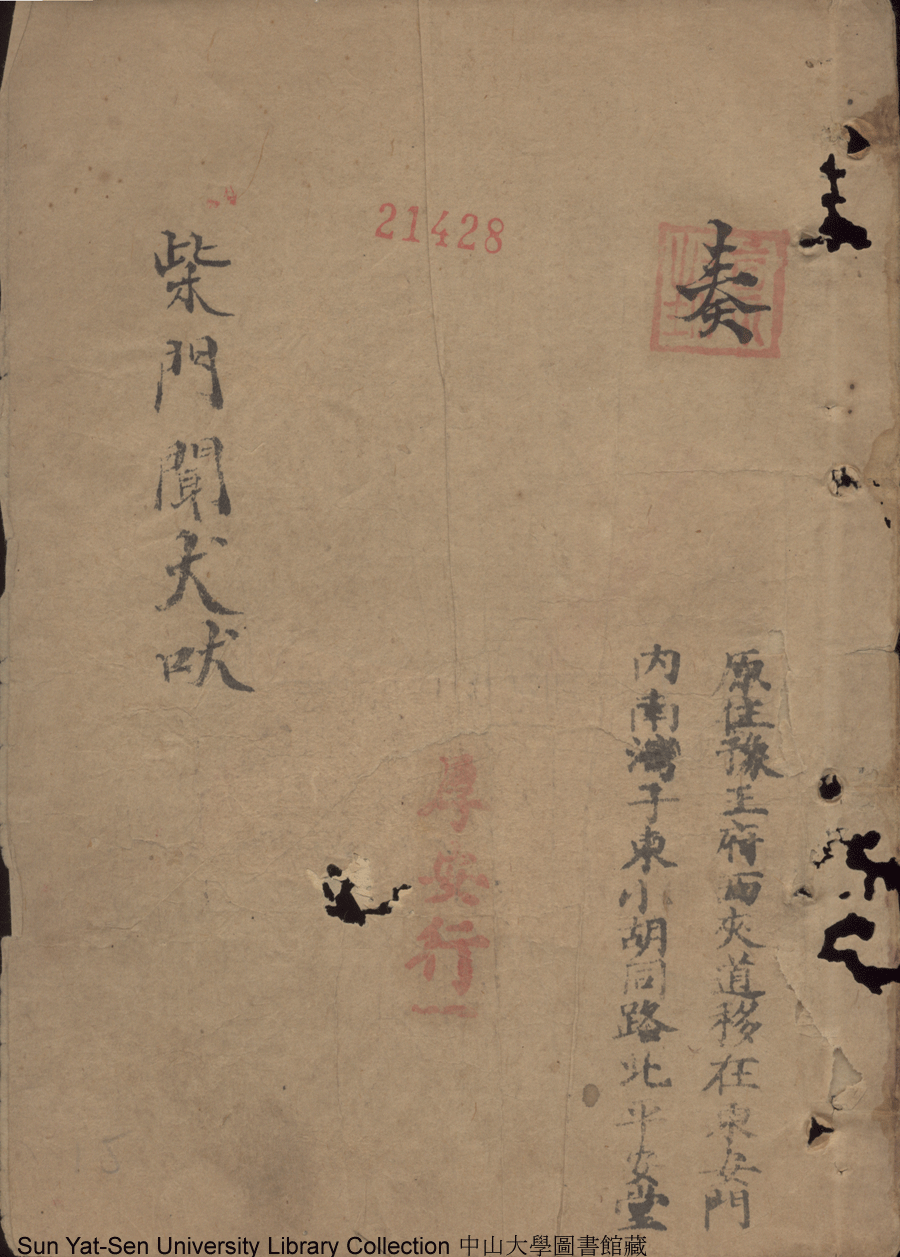 奏
原住豫王府西夾道移在東安門
内南灣子東小胡同路北平安堂
厚安行一
21428
柴門聞犬吠
Sun Yat-Sen University Library Collection 中山大學圖書館藏